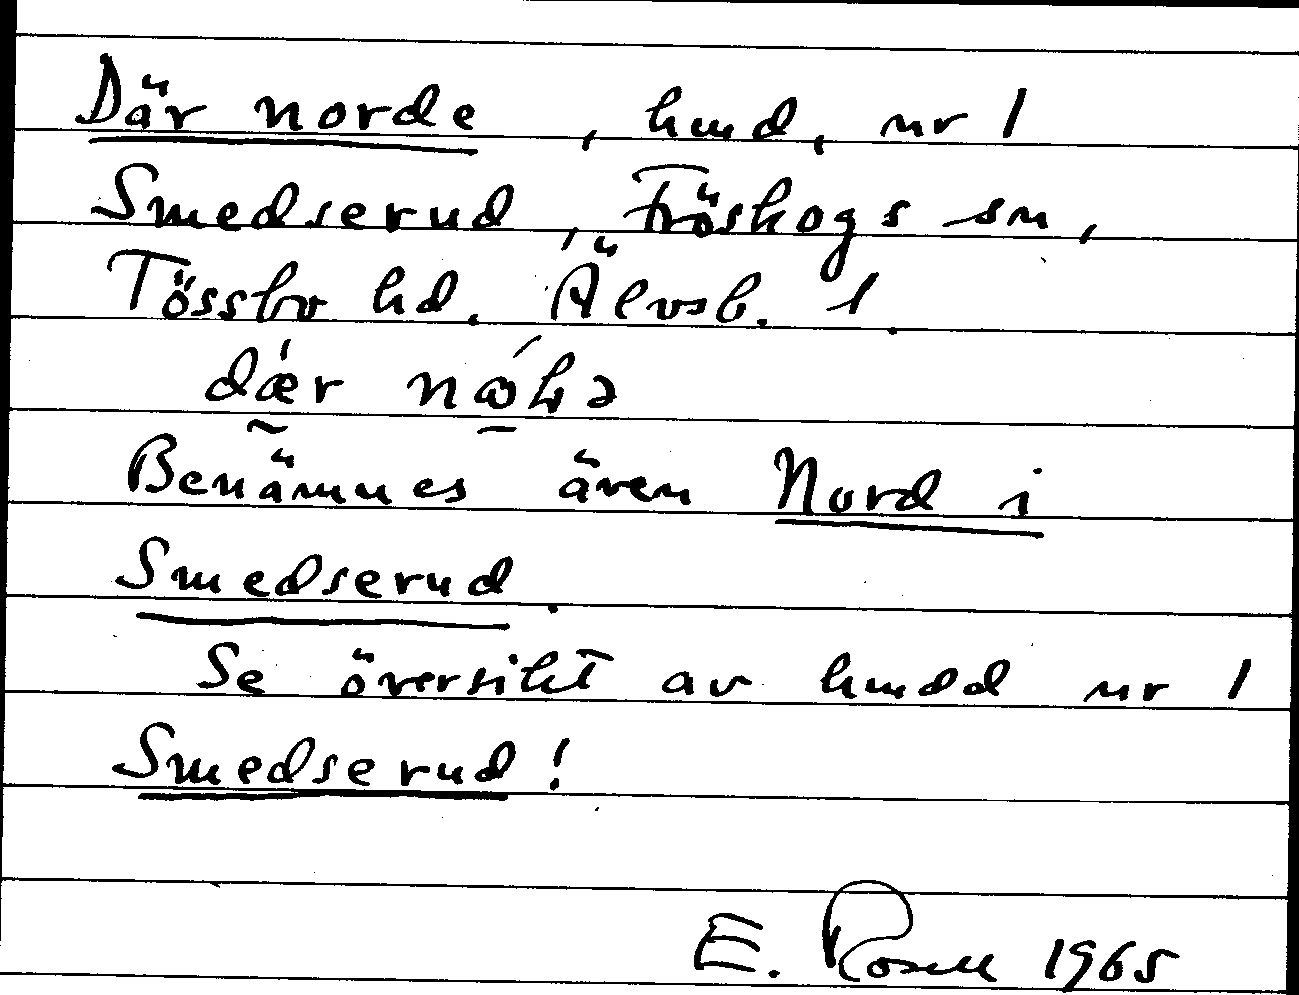 Där norde, hmd, nr 1
Smedserud, Fröskogs sn,
Tössbo hd. Älvsb. l.
Benämnes även Nord i
Smedserud.
Se översikt av hmdd nr 1
Smedserud!
E. Rosell 1965